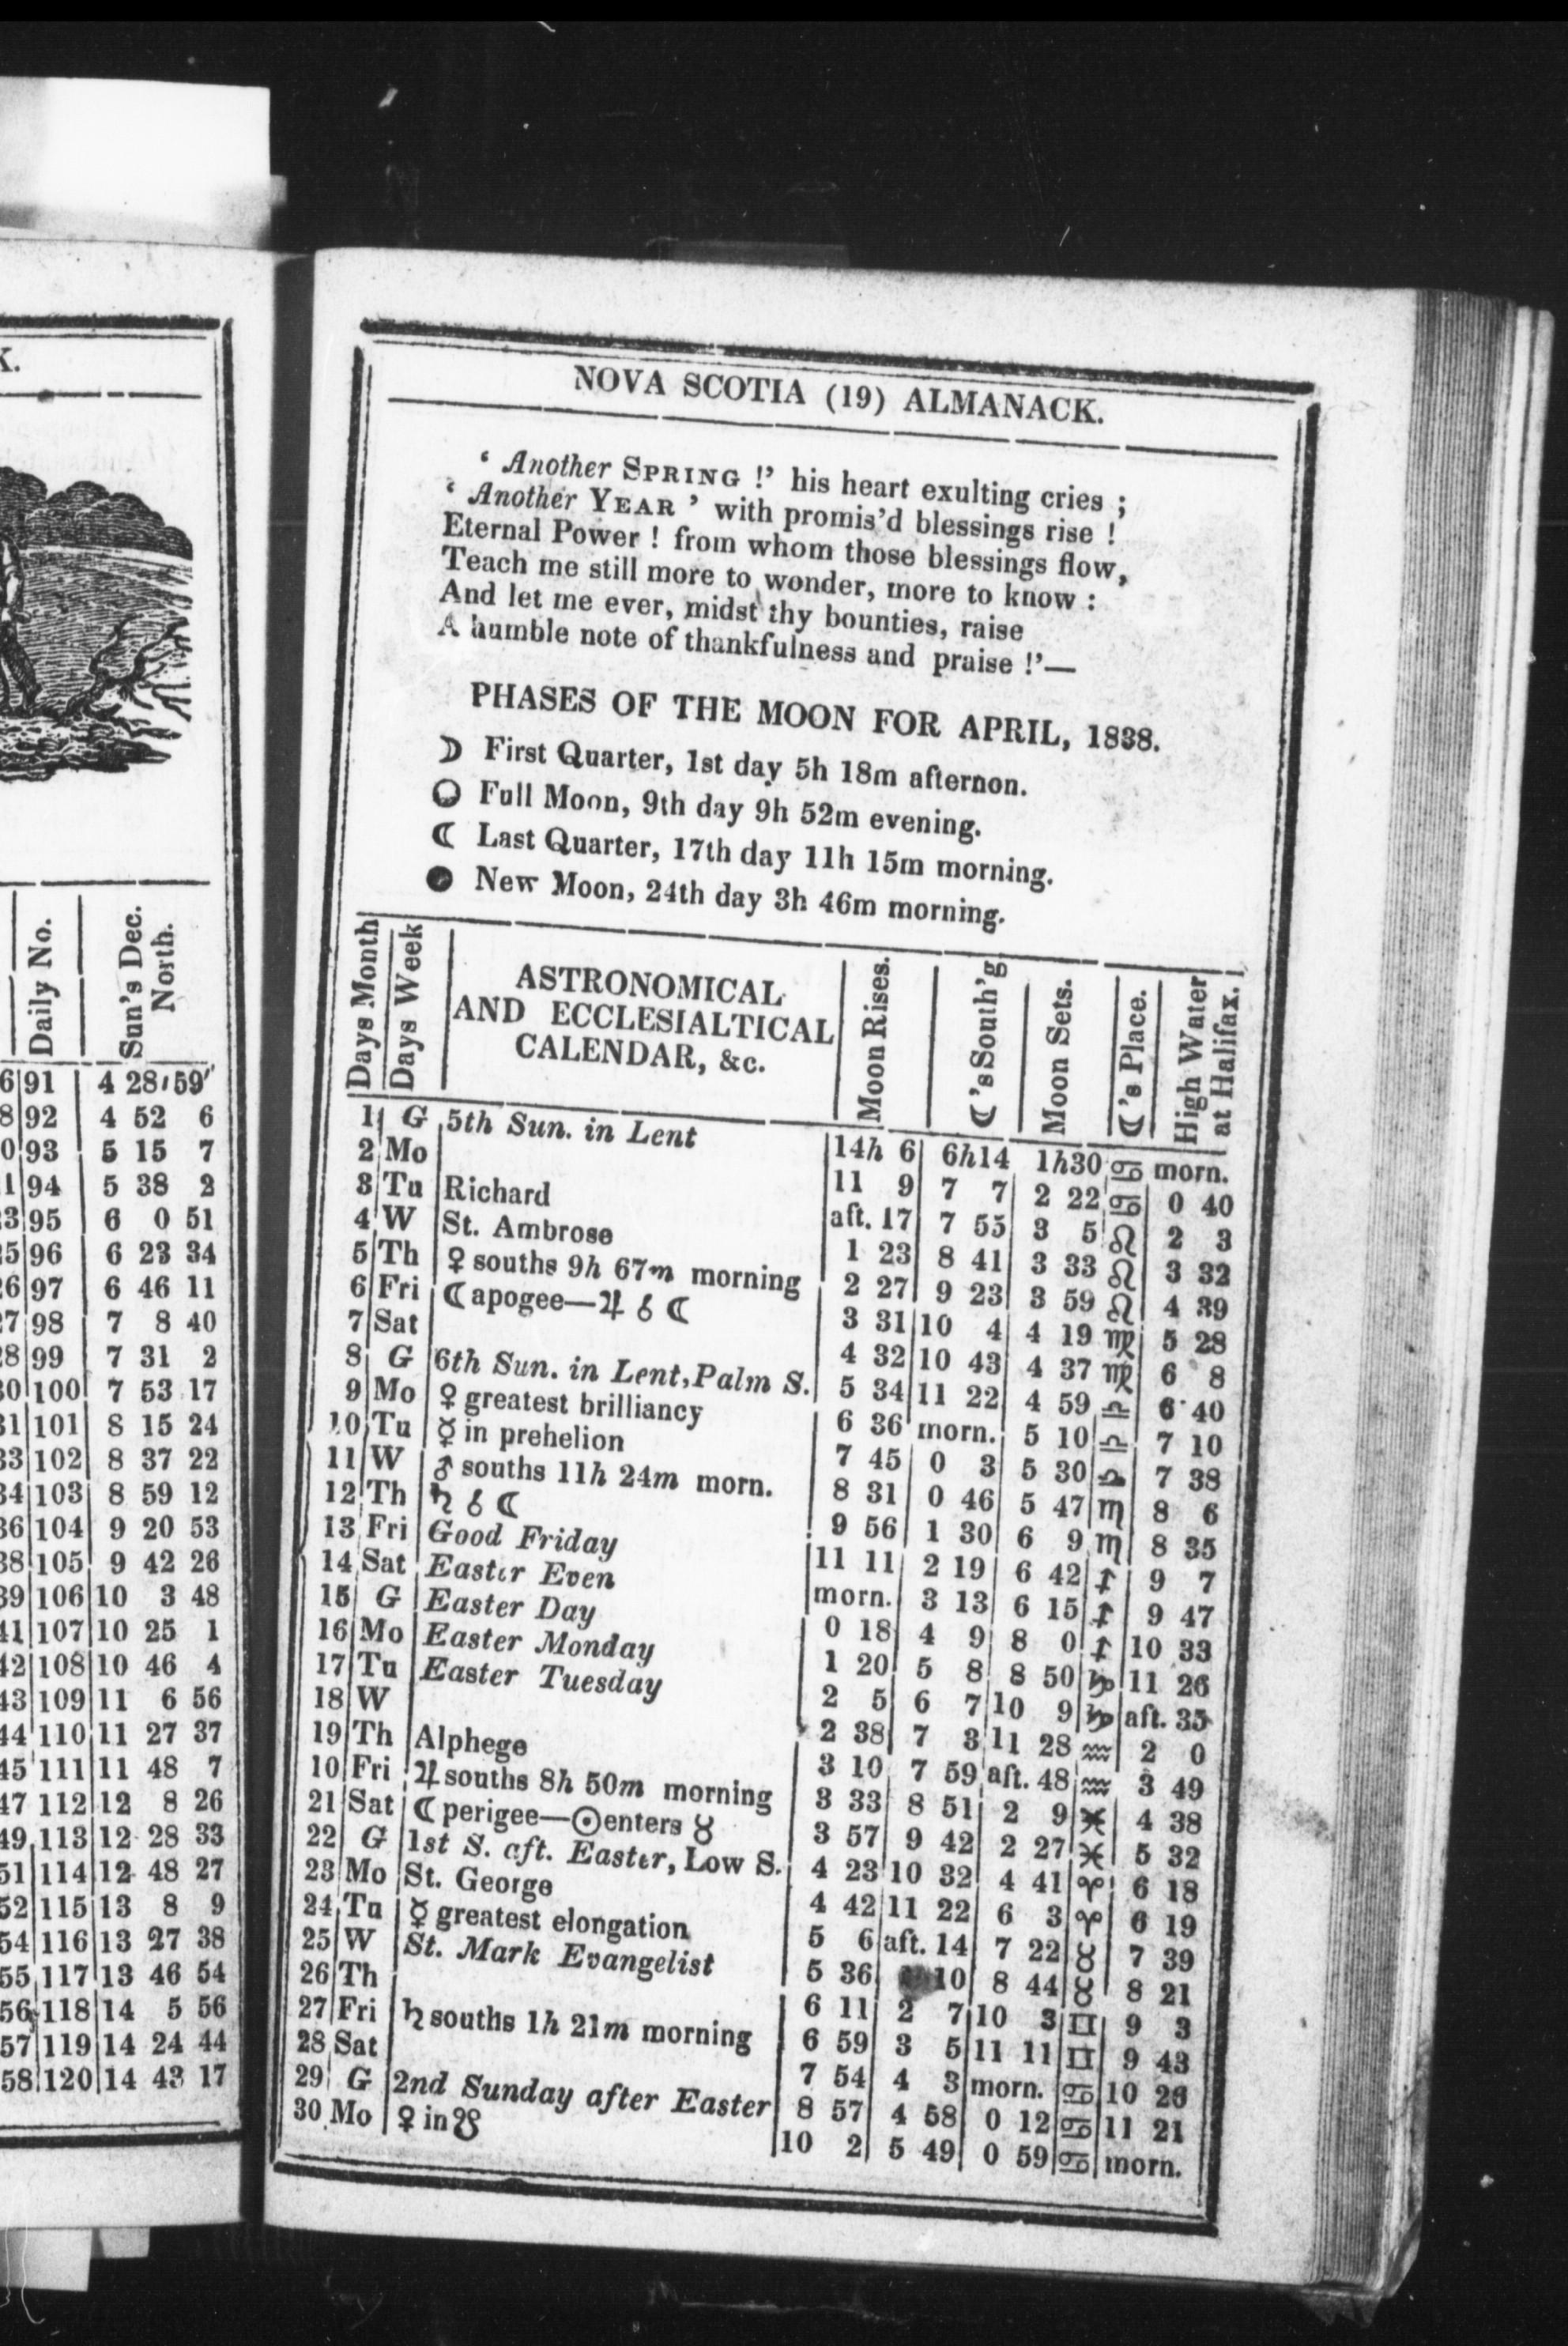 K.
Daily No. Sun's Dec. North.
6 91 4 28 59
8 92 4 52 6
0 93 5 15 7
1 94 5 38 2
3 95 6 0 51
5 96 6 23 34
6 97 6 46 11
7 98 7 8 40
8 99 7 31 2
0 100 7 53 17
1 101 8 15 24
3 102 8 37 22
4 103 8 59 12
6 104 9 20 53
8 105 9 42 26
9 106 10 3 48
1 107 10 25 1
2 108 10 46 4
3 109 11 6 56
4 110 11 27 37
5 111 11 48 7
7 112 12 8 26
9 113 12 28 33
1 114 12 48 27
2 115 13 8 9
4 116 13 27 38
5 117 13 46 54
6 118 14 5 56
7 119 14 24 44
8 120 14 43 17
NOVA SCOTIA (19) ALMANACK.
‘ Another SPRING !’ his heart exulting cries ;
‘ Another YEAR ’ with promis'd blessings rise !
Eternal Power ! from whom those blessings flow,
Teach me still more to wonder, more to know :
And let me ever, midst thy bounties, raise
A humble note of thankfulness and praise !’—
PHASES OF THE MOON FOR APRIL, 1838.
☽ First Quarter, 1st day 5h 18m afternon.
○ Full Moon, 9th day 9h 52m evening.
☾ Last Quarter, 17th day 11h 15m morning.
● New Moon, 24th day 3h 46m morning.
Days Month Days Week ASTRONOMICAL AND ECCLESIALTICAL CALENDAR, &c. Moon Rises. ☾'s South'g Moon Sets. ☾'s Place. High Water at Halifax.
1 G 5th Sun. in Lent 14h 6 6h14 1h30 ♋ morn.
2 Mo 11 9 7 7 2 22 ♋ 0 40
3 Tu Richard aft. 17 7 55 3 5 ♌ 2 3
4 W St. Ambrose 1 23 8 41 3 33 ♌ 3 32
5 Th ♀ souths 9h 67m morning 2 27 9 23 3 59 ♌ 4 39
6 Fri ☾ apogee—♃ ☍ ☾ 3 31 10 4 4 19 ♍ 5 28
7 Sat 4 32 10 43 4 37 ♍ 6 8
8 G 6th Sun. in Lent, Palm S. 5 34 11 22 4 59 ♎ 6 40
9 Mo ♀ greatest brilliancy 6 36 morn. 5 10 ♎ 7 10
10 Tu ☿ in prehelion 7 45 0 3 5 30 ♎ 7 38
11 W ♂ souths 11h 24m morn. 8 31 0 46 5 47 ♏ 8 6
12 Th ♄ ☍ ☾ 9 56 1 30 6 9 ♏ 8 35
13 Fri Good Friday 11 11 2 19 6 42 ♐ 9 7
14 Sat Easter Even morn. 3 13 6 15 ♐ 9 47
15 G Easter Day 0 18 4 9 8 0 ♐ 10 33
16 Mo Easter Monday 1 20 5 8 8 50 ♑ 11 26
17 Tu Easter Tuesday 2 5 6 7 10 9 ♑ aft. 35
18 W 2 38 7 3 11 28 ♒ 2 0
19 Th Alphege 3 10 7 59 aft. 48 ♒ 3 49
10 Fri ♃ souths 8h 50m morning 3 33 8 51 2 9 ♓ 4 38
21 Sat ☾ perigee—☉ enters ♉ 3 57 9 42 2 27 ♓ 5 32
22 G 1st S. aft. Easter, Low S. 4 23 10 32 4 41 ♈ 6 18
23 Mo St. George 4 42 11 22 6 3 ♈ 6 19
24 Tu ☿ greatest elongation 5 6 aft. 14 7 22 ♉ 7 39
25 W St. Mark Evangelist 5 36 10 8 44 ♉ 8 21
26 Th 6 11 2 7 10 3 ♊ 9 3
27 Fri ♄ souths 1h 21m morning 6 59 3 5 11 11 ♊ 9 43
28 Sat 7 54 4 3 morn. ♋ 10 26
29 G 2nd Sunday after Easter 8 57 4 58 0 12 ♋ 11 21
30 Mo ♀ in ☋ 10 2 5 49 0 59 ♋ morn.